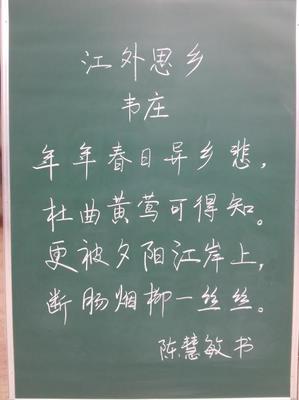 江外思乡
韦庄
年年春日异乡悲，
杜曲黄莺可得知。
更被夕阳江岸上，
断肠烟柳一丝丝。
陈慧敏书